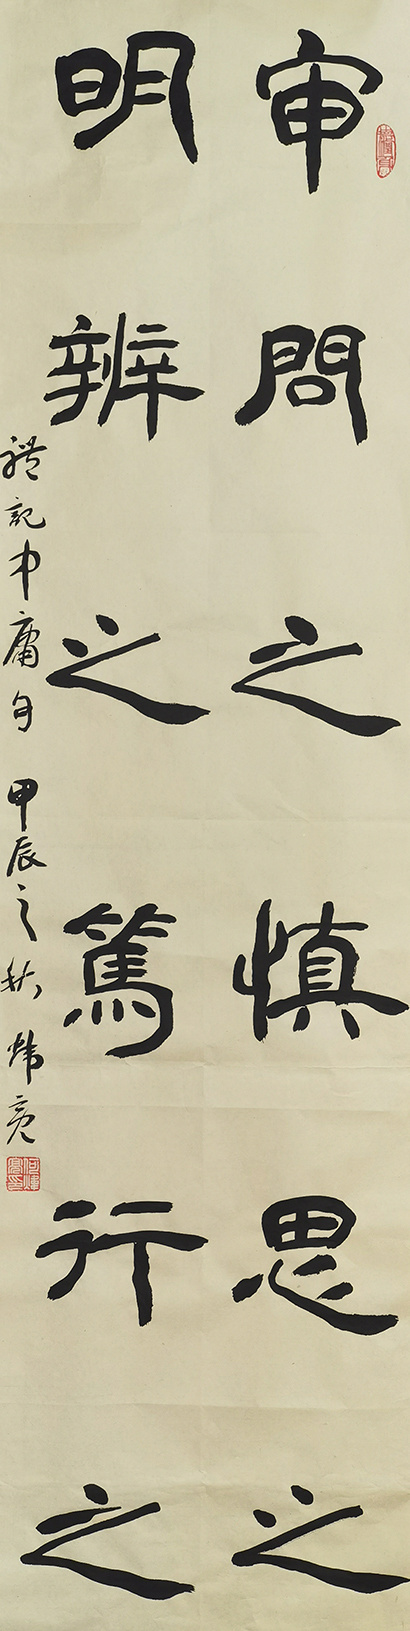 审問之慎思之
明辨之篤行之
禮記中庸句 甲辰之秋 煒亮